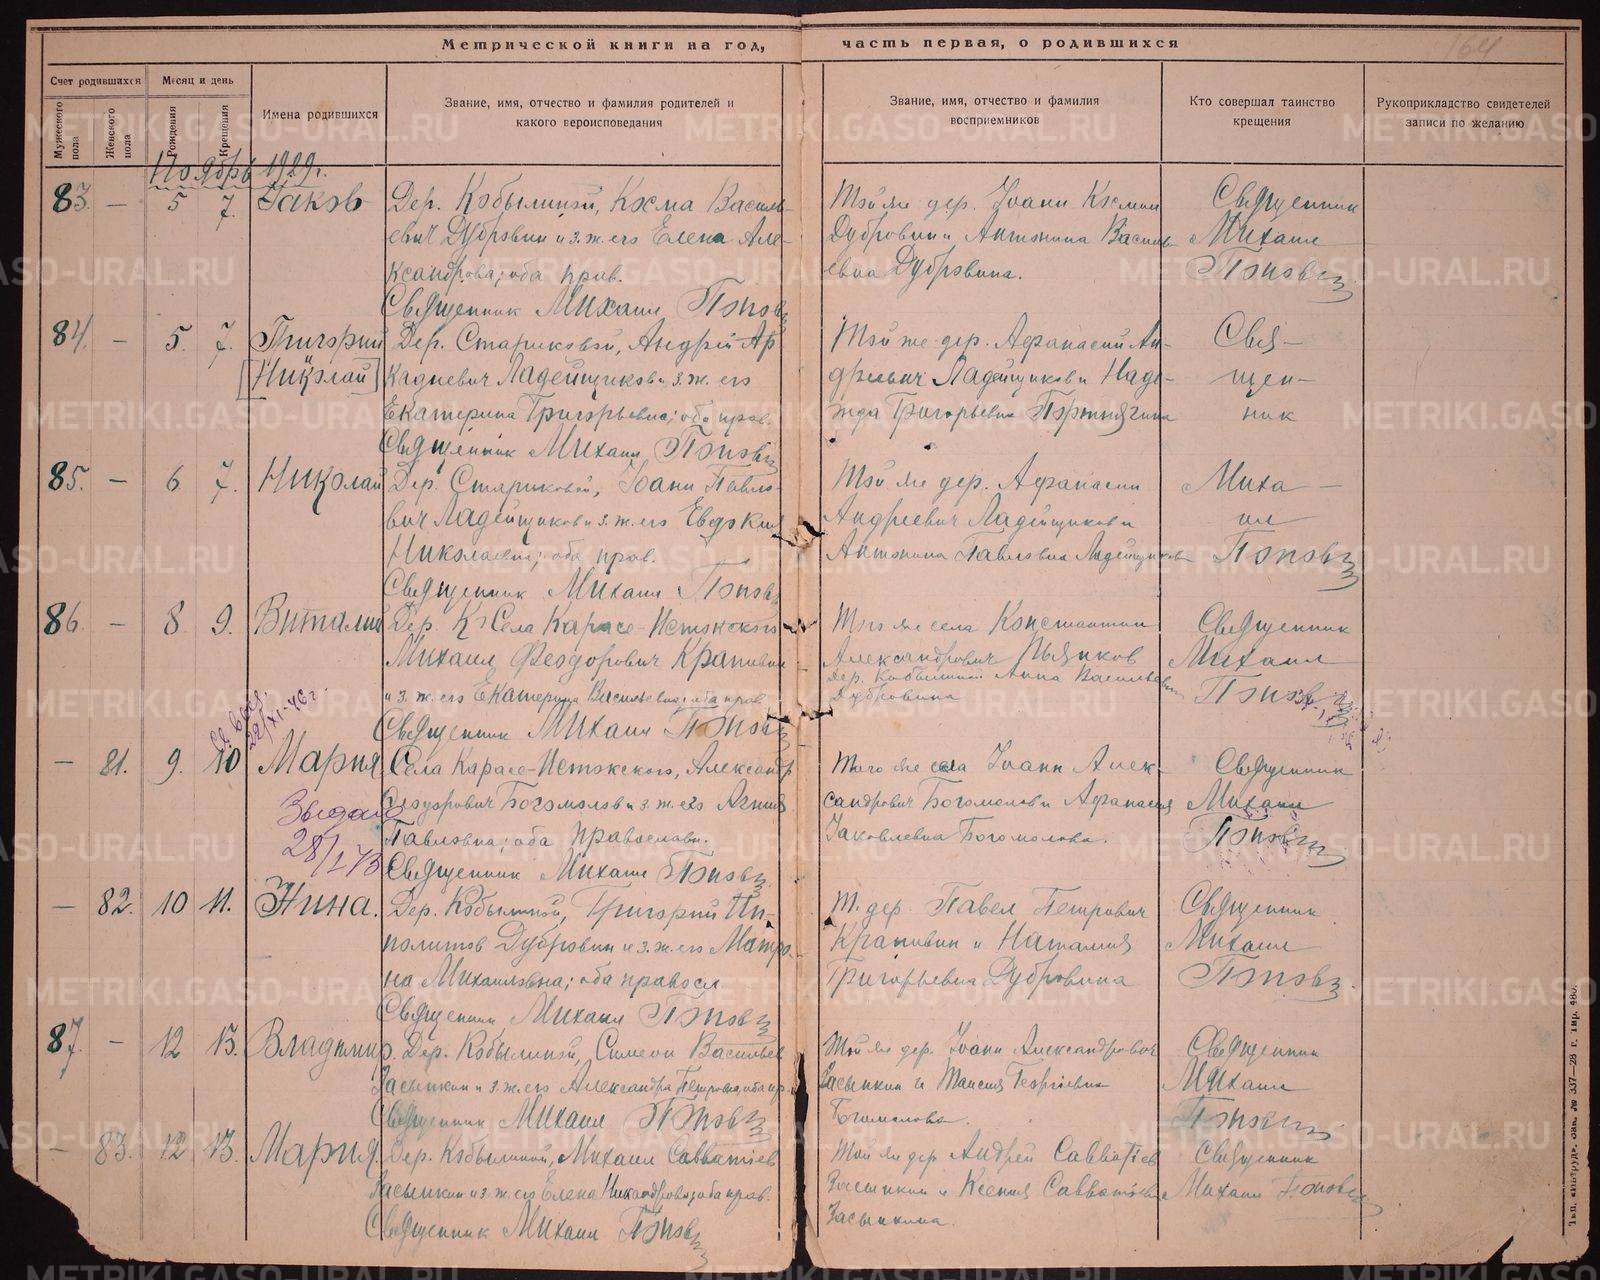 Метрической книги на год, часть первая, о родившихся
164
Счет родившихся
Месяц и день
Мужеского пола
Женского пола
Рождения
Крещения
Имена родившихся
Звание, имя, отчество и фамилия родителей и какого вероисповедания
Звание, имя, отчество и фамилия восприемников
Кто совершал таинство крещения
Рукоприкладство свидетелей записи по желанию
Ноябрь 1929 г.
83. — 5 7. Iаков
Дер. Кобылиной, Косма Василь-
евич Дубровин и з. ж. его Елена Але-
ксандрова; оба прав.
Священник Михаил Попов
Той же дер. Iоанн Космин
Дубровин и Антонина Василь
евна Дубровина.
Священник
Михаил
Попов
84. — 5. 7. Григорий
[Николай]
Дер. Стариковой, Андрей Ар
кадиевич Ладейщиков и з. ж. его
Екатерина Григорьевна; оба прав.
Священник Михаил Попов
Той же дер. Афанасий Ан-
дреевич Ладейщиков и Наде-
жда Григорьевна
Свя-
щен-
ник
85. — 6 7. Николай
Дер. Стариковой, Iоанн Павло-
вич Ладейщиков и з. ж. его Евдокия
Николаевна; оба прав.
Священник Михаил Попов
Той же дер. Афанасий
Андреевич Ладейщиков и
Антонина Павловна Ладейщикова
Миха —
ил
Попов
86. — 8 9. Виталий
Дер. К Села Карасе-Истокского
Михаил Феодорович Крапивин
и з. ж. его Екатерина Васильевна; оба прав.
Священник Михаил Попов
Того же села Константин
Александрович Пьянков
Дер. Кобылиной Анна Васильев
Дубровина
Священник
Михаил
Попов
22/XI-46 г.
— 81. 9. 10 Мария
Села Карасе-Истокского, Александр
Феодорович Богомолов и з. ж. его Агния
Павловна; оба православн.
Священник Михаил Попов
Того же села Iоанн Алек-
сандрович Богомолов и Афанасия
Iаковлевна Богомолова.
Священник
Михаил
Попов
28/I 73
— 82. 10 11. Нина.
Дер. Кобылиной, Григорий Ип-
политов Дубровин и з. ж. его Матро-
на Михаиловна; оба правосл
Священник Михаил Попов
Т. дер. Павел Петрович
Крапивин и Наталия
Григорьевна Дубровина
Священник
Михаил
Попов
87. — 12 13. Владимир.
Дер. Кобылиной, Симеон Васильев
Засыпкин и з. ж. его Александра Петровна, оба пр.
Священник Михаил Попов
Той же дер. Iоанн Александрович
Засыпкин и Таисия Георгиевна
Богомолова.
Священник
Михаил
Попов
— 83. 12 13. Мария.
Дер. Кобылиной, Михаил Савватиев
Засыпкин и з. ж. его Елена Никандровна; оба прав.
Священник Михаил Попов
Той же дер Андрей Савватiев
Засыпкин и Ксения Савватiевна
Засыпкина.
Священник
Михаил Попов
METRIKI.GASO-URAL.RU